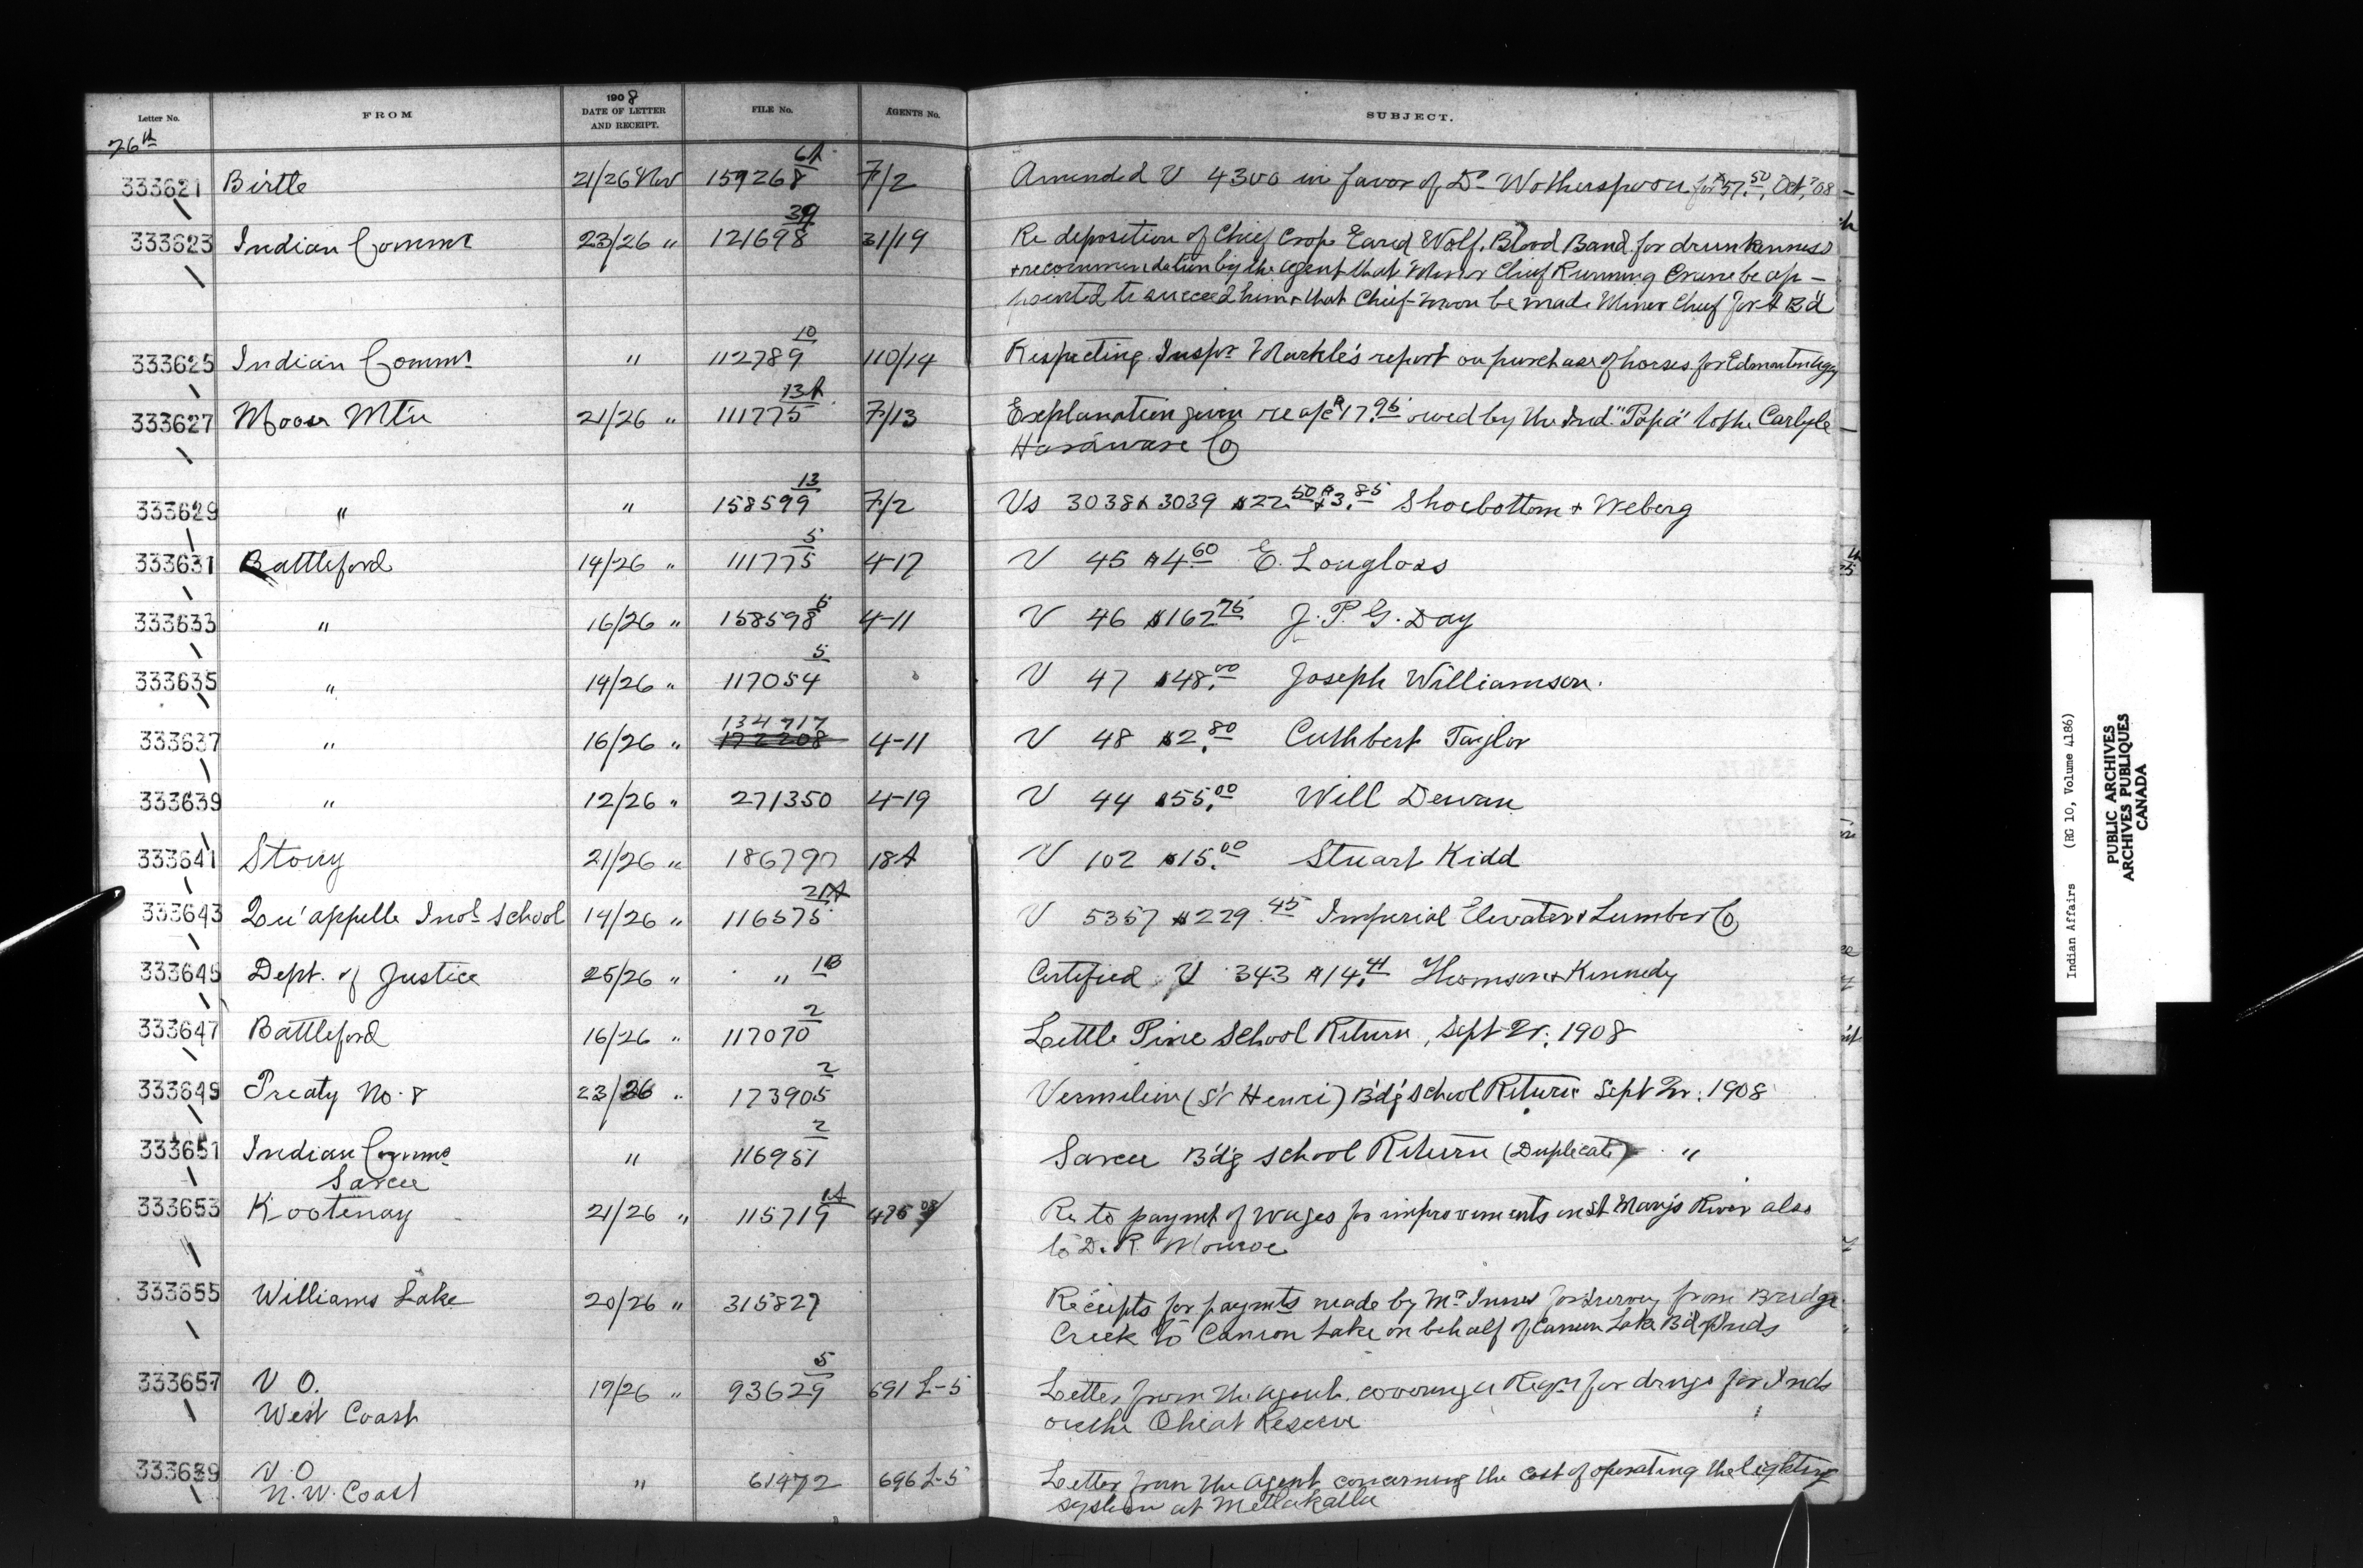 1908
Letter No. FROM DATE OF LETTER AND RECEIPT. FILE No. AGENTS No. SUBJECT.
26th
333621 Birtle 21/26 Nov 159268 6A 7/2 Amended V 4300 in favor of Dr Wotherspoon for $57.50, Oct, '08
333623 Indian Commr 23/26 " 121698 39 31/19 Re deposition of Chief Crop Eared Wolf, Blood Band for drunkenness
+ recommendation by the agent that Minor Chief Running Crane be ap-
pointed to succeed him + that Chief Moon be made Minor Chief for
333625 Indian Commr " 112789 10 110/14 Respecting Inspr Markle's report on purchase of horses for Edmonton Agcy
333627 Moose Mtn 21/26 " 111775 13A 7/13 Explanation given re a/c $17.95 owed by the Ind. "Papa" to the Carlyle
Hardware Co
333629 " " 158599 13 7/2 Vs 3038 & 3039 $22.50 + $3.85 Shoebottom + Weberg
333631 Battleford 14/26 " 111775 5 4-17 V 45 $4.60 E. Longloss
333633 " 16/26 " 158598 5 4-11 V 46 $162.75 J. P. G. Day
333635 " 14/26 " 117054 5 V 47 $48.00 Joseph Williamson.
134717
333637 " 16/26 " 172208 4-11 V 48 $2.80 Cuthbert Taylor
333639 " 12/26 " 271350 4-19 V 44 $55.00 Will Dewan
333641 Stony 21/26 " 186790 18A V 102 $15.00 Stuart Kidd
333643 Qu'appelle Indl School 14/26 " 116575 21A V 5357 $229.45 Imperial Elevator & Lumber Co
333645 Dept. of Justice 25/26 " " 1B Certified V 343 $14.41 Thomson + Kennedy
333647 Battleford 16/26 " 117070 2 Little Pine School Return, Sept Qr. 1908
333649 Treaty No. 8 23/26 " 173905 2 Vermilion (St Henri) B'd'g School Return Sept Qr. 1908
333651 Indian Commr " 116951 2 Sarcee B'd'g School Return (Duplicate) "
Sarcee
333653 Kootenay 21/26 " 115719 1A 475 08 Re to paymt of wages for improvements on St Mary's River also
to D. R. Monroe
333655 Williams Lake 20/26 " 315827 Receipts for paymts made by Mr Innes for survey from Bridge
Creek to Canon Lake on behalf of Canon Lake B'd of Inds
333657 V O. 19/26 " 93629 5 691 L-5 Letter from the agent covering a Reqn for drugs for Inds
West Coast on the Ohiat Reserve
333659 V. O " 61472 696 L-5 Letter from the Agent concerning the cost of operating the lighting
N. W. Coast system at Metlakatla
Indian Affairs (RG 10, Volume 4186)
PUBLIC ARCHIVES
ARCHIVES PUBLIQUES
CANADA